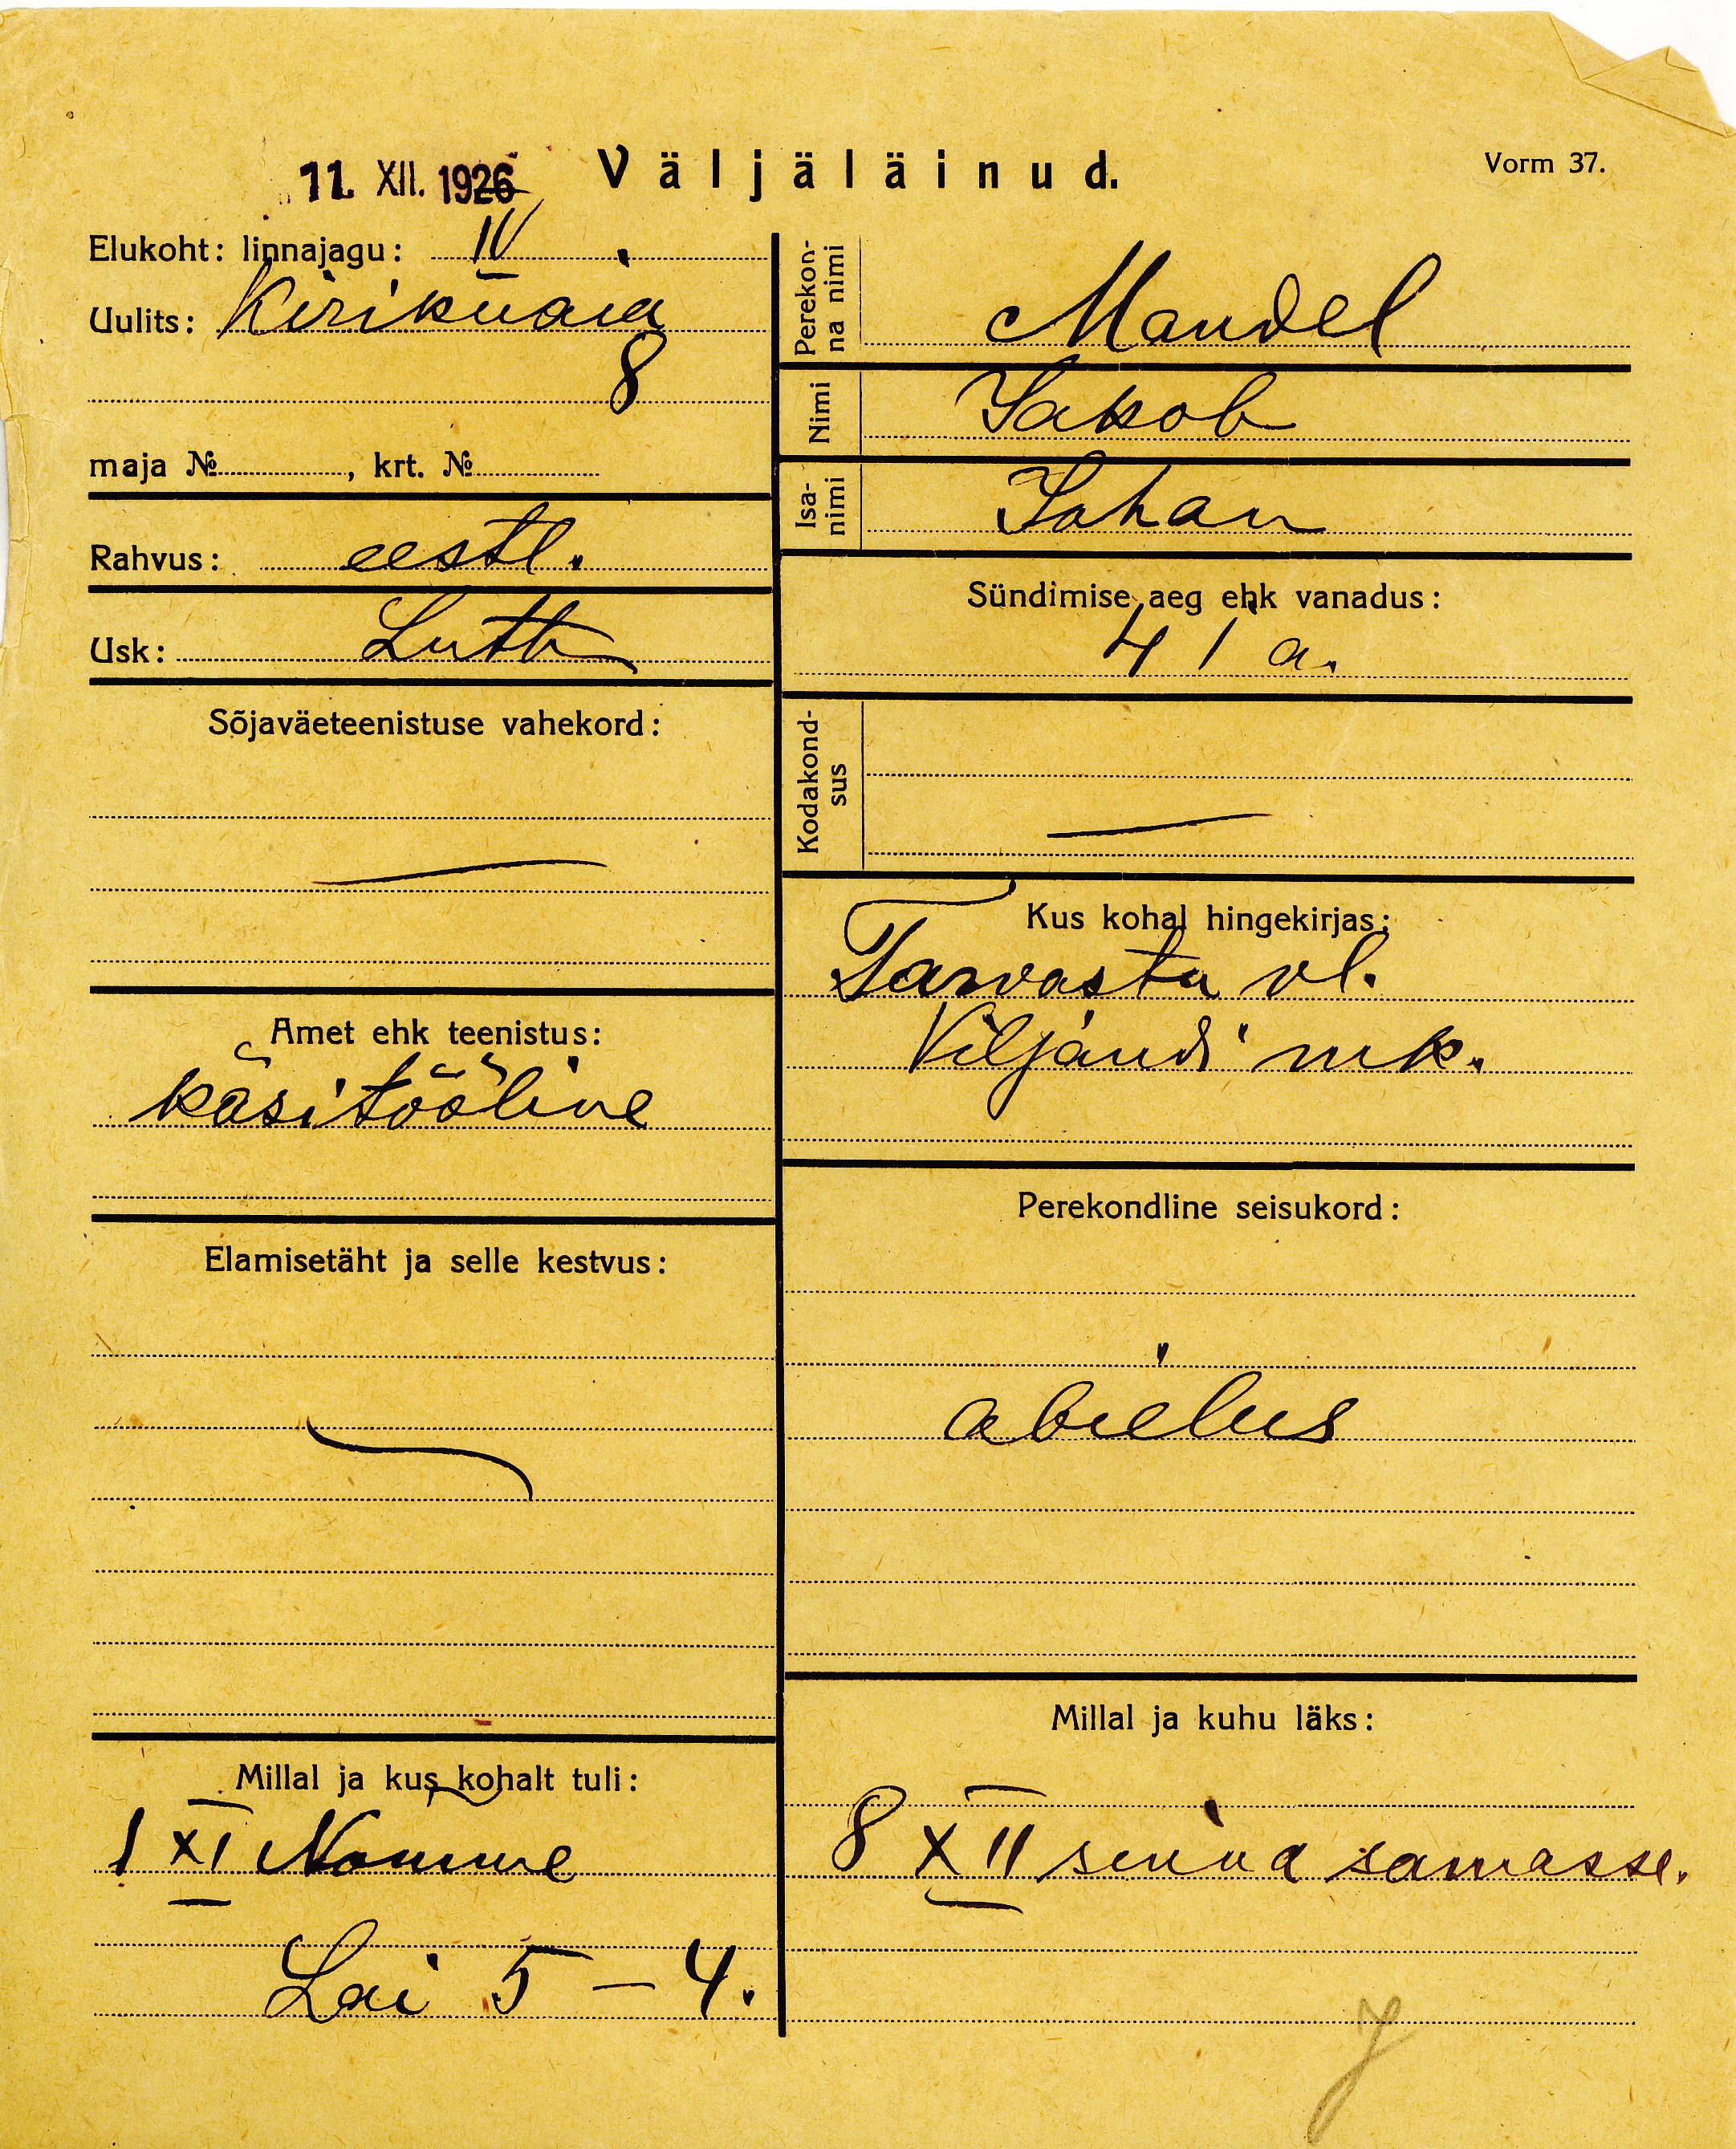 11. XII. 1926
Väljäläinud.
Vorm 37.
Elukoht: linnajagu: IV
Uulits: Kirikuaia
8
maja №, krt. №
Rahvus: eestl.
Usk: Luth
Sõjaväeteenistuse vahekord:
—
Amet ehk teenistus:
käsitööline
Elamisetäht ja selle kestvus:
Millal ja kus kohalt tuli:
1 XI Nõmme
Lai 5 – 4.
Perekonna nimi Mandel
Nimi Jakob
Isanimi Johan
Sündimise aeg ehk vanadus:
41 a.
Kodakondsus —
Kus kohal hingekirjas:
Tarvastu vl.
Viljandi mk.
Perekondline seisukord:
abielus
Millal ja kuhu läks:
8 XII sinna samasse.